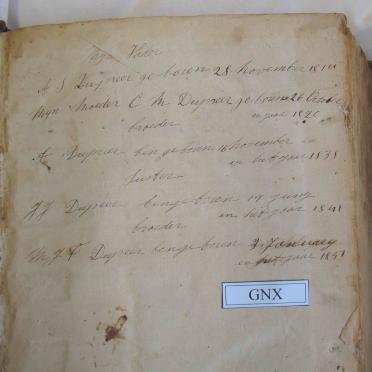 Myn Vader
A S Dupreer ge boren 28 November 1814
Myn Moeder C M Dupreer geboren 26
in jaar 1820
broeder
A Dupreer ben geboren 16 November in
en het jaar 1838
Suster
J J Dupreer ben geboren 19 Juny
in het jaar 1841
broeder
M J F Dupreer ben geboren 2 January
en het jaar 1851
GNX